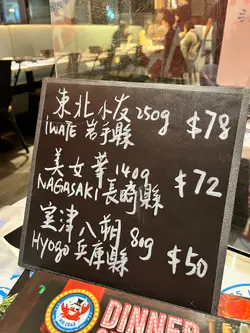 東北小友 250g $78
IWATE 岩手縣
美女華 140g $72
NAGASAKI 長崎縣
室津八朔 80g $50
HYOGO 兵庫縣
DINNER